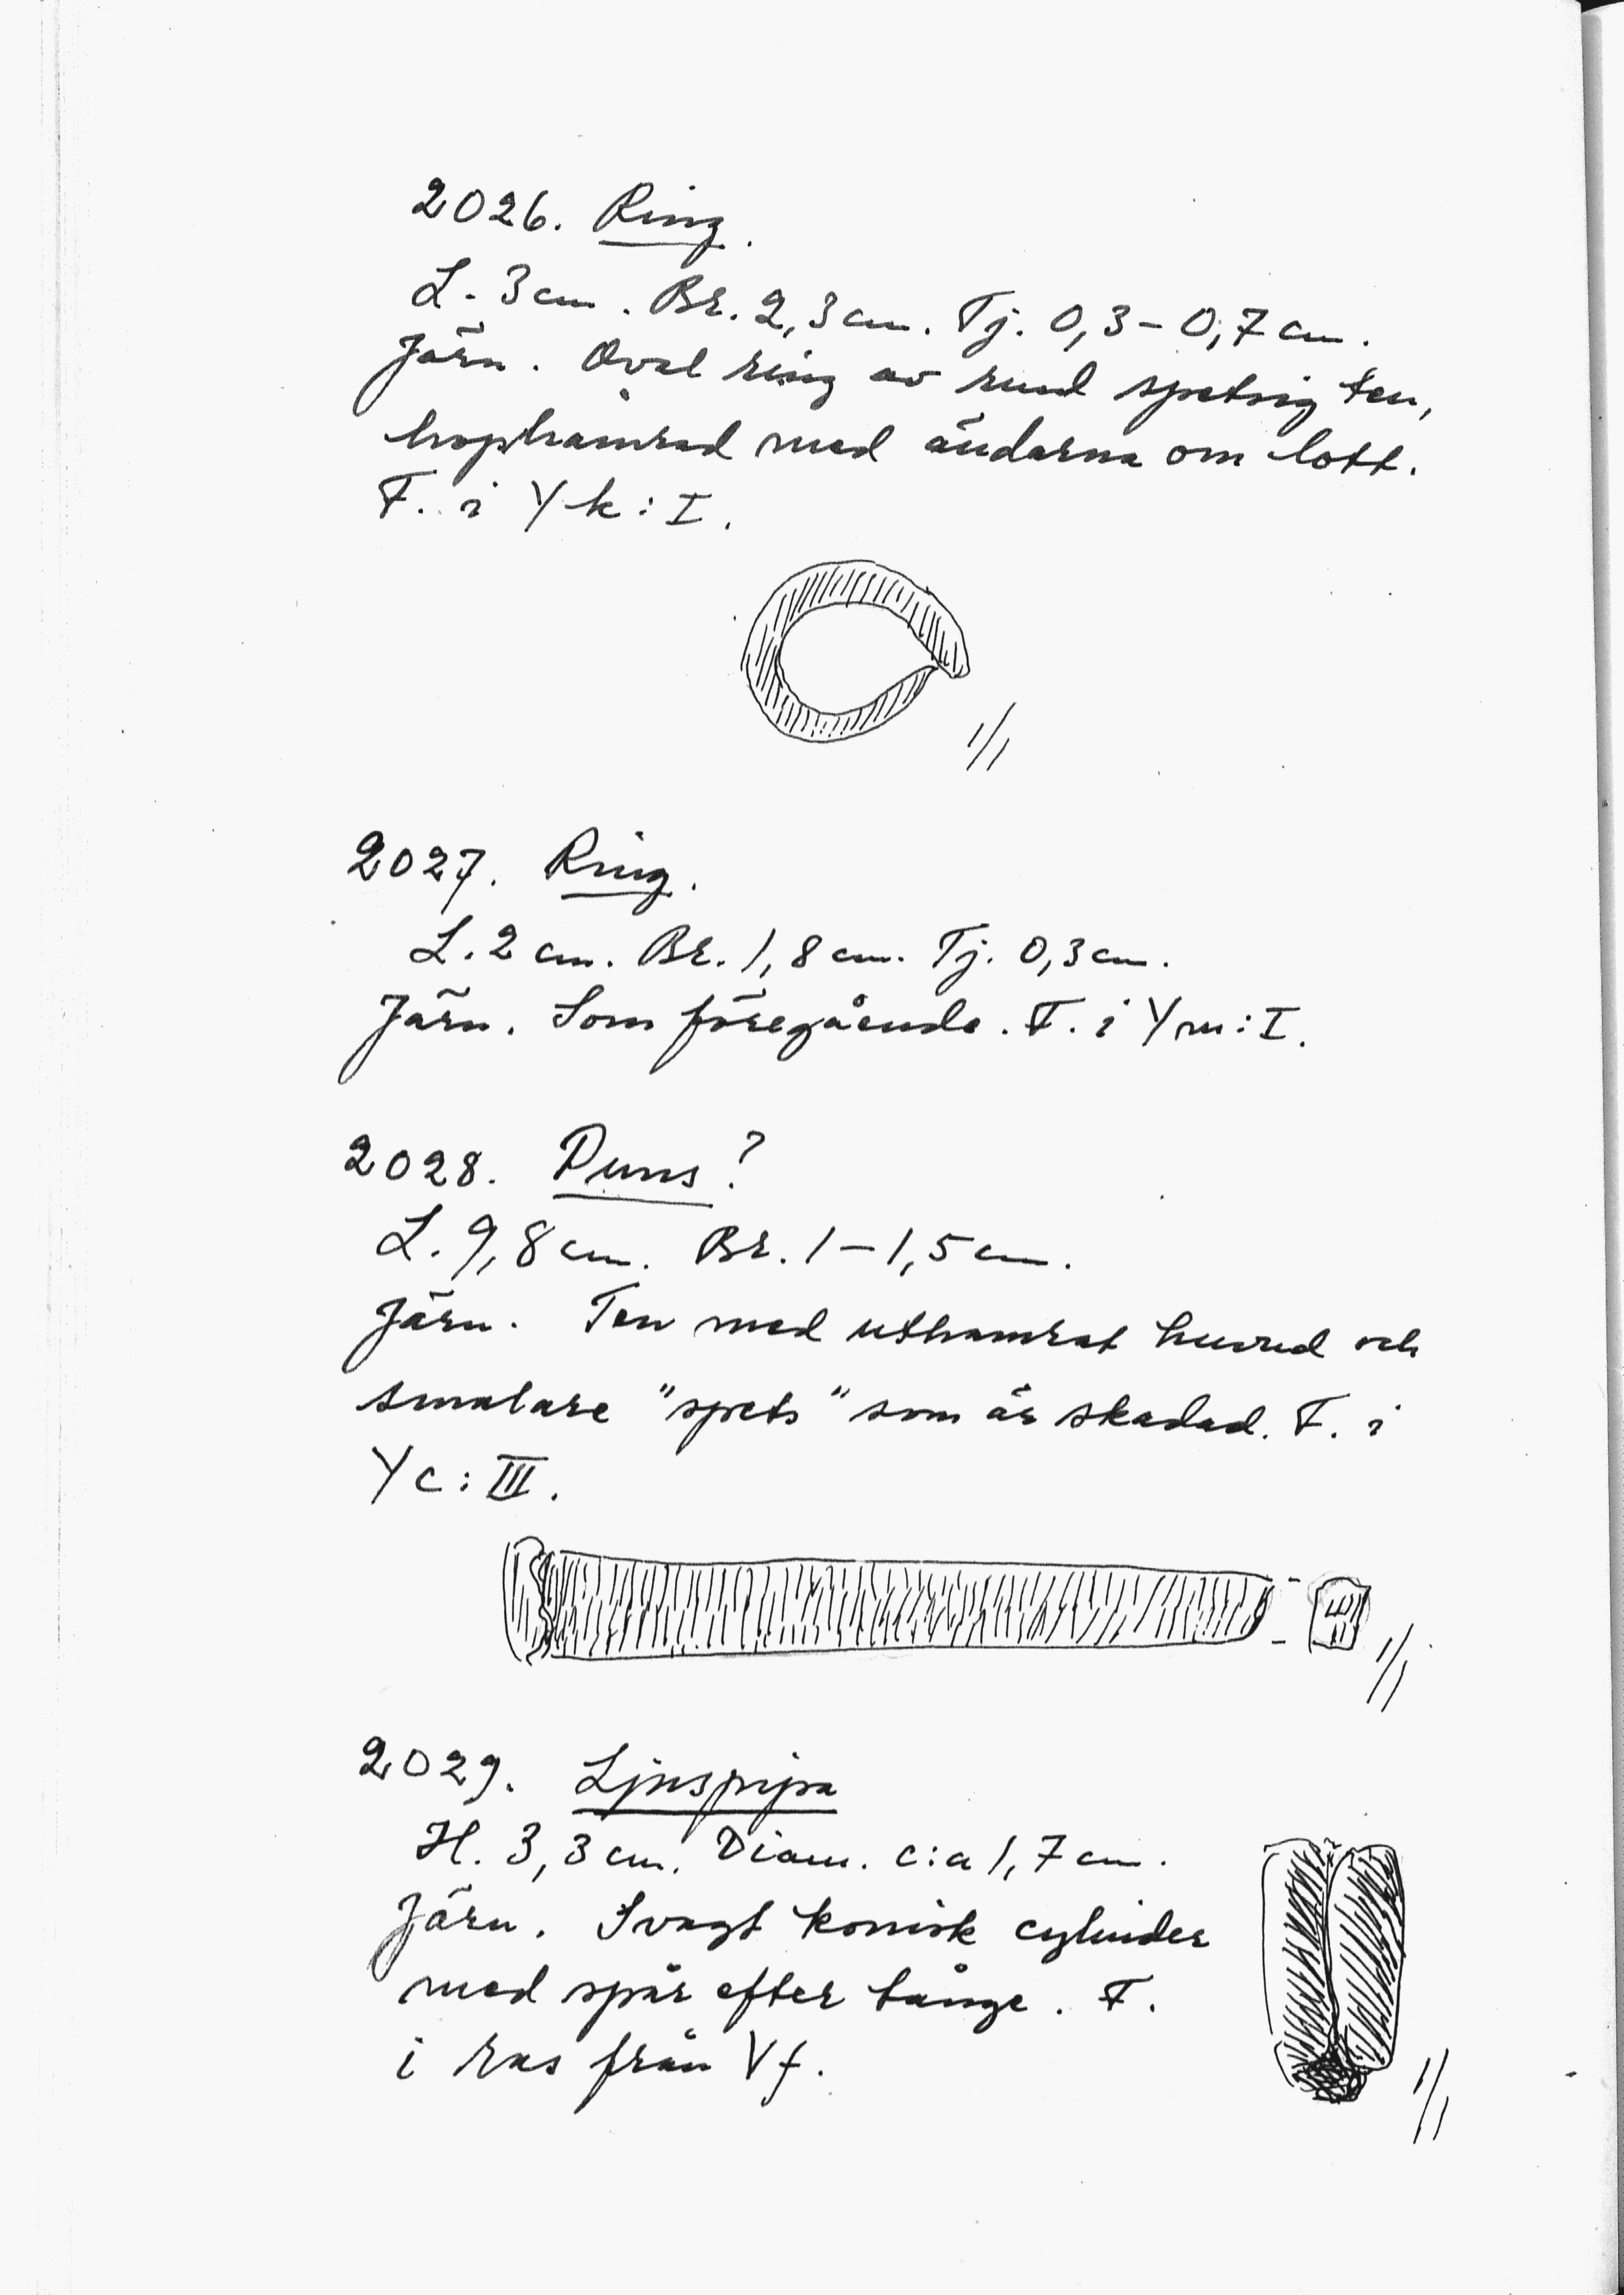 2026. Ring.
L. 3 cm. Br. 2,3 cm. Tj. 0,3 – 0,7 cm.
Järn. Oval ring av rund spetsig ten,
hophamrad med ändarna om lott.
F. i Yk: I.
1/1
2027. Ring.
L. 2 cm. Br. 1,8 cm. Tj. 0,3 cm.
Järn. Som föregående. F. i Ym: I.
2028. Puns?
L. 9,8 cm. Br. 1 – 1,5 cm.
Järn. Ten med uthamrat huvud och
smalare "spets" som är skadad. F. i
Yc: III.
1/1
2029. Ljuspipa
H. 3,3 cm. Diam. c:a 1,7 cm.
Järn. Svagt konisk cylinder
med spår efter tånge. F.
i ras från Vf.
1/1